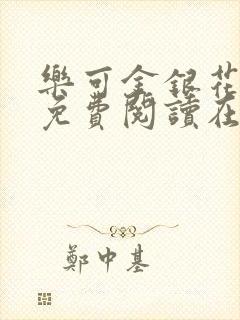 樂可金銀花
免費閱讀在
鄭中基